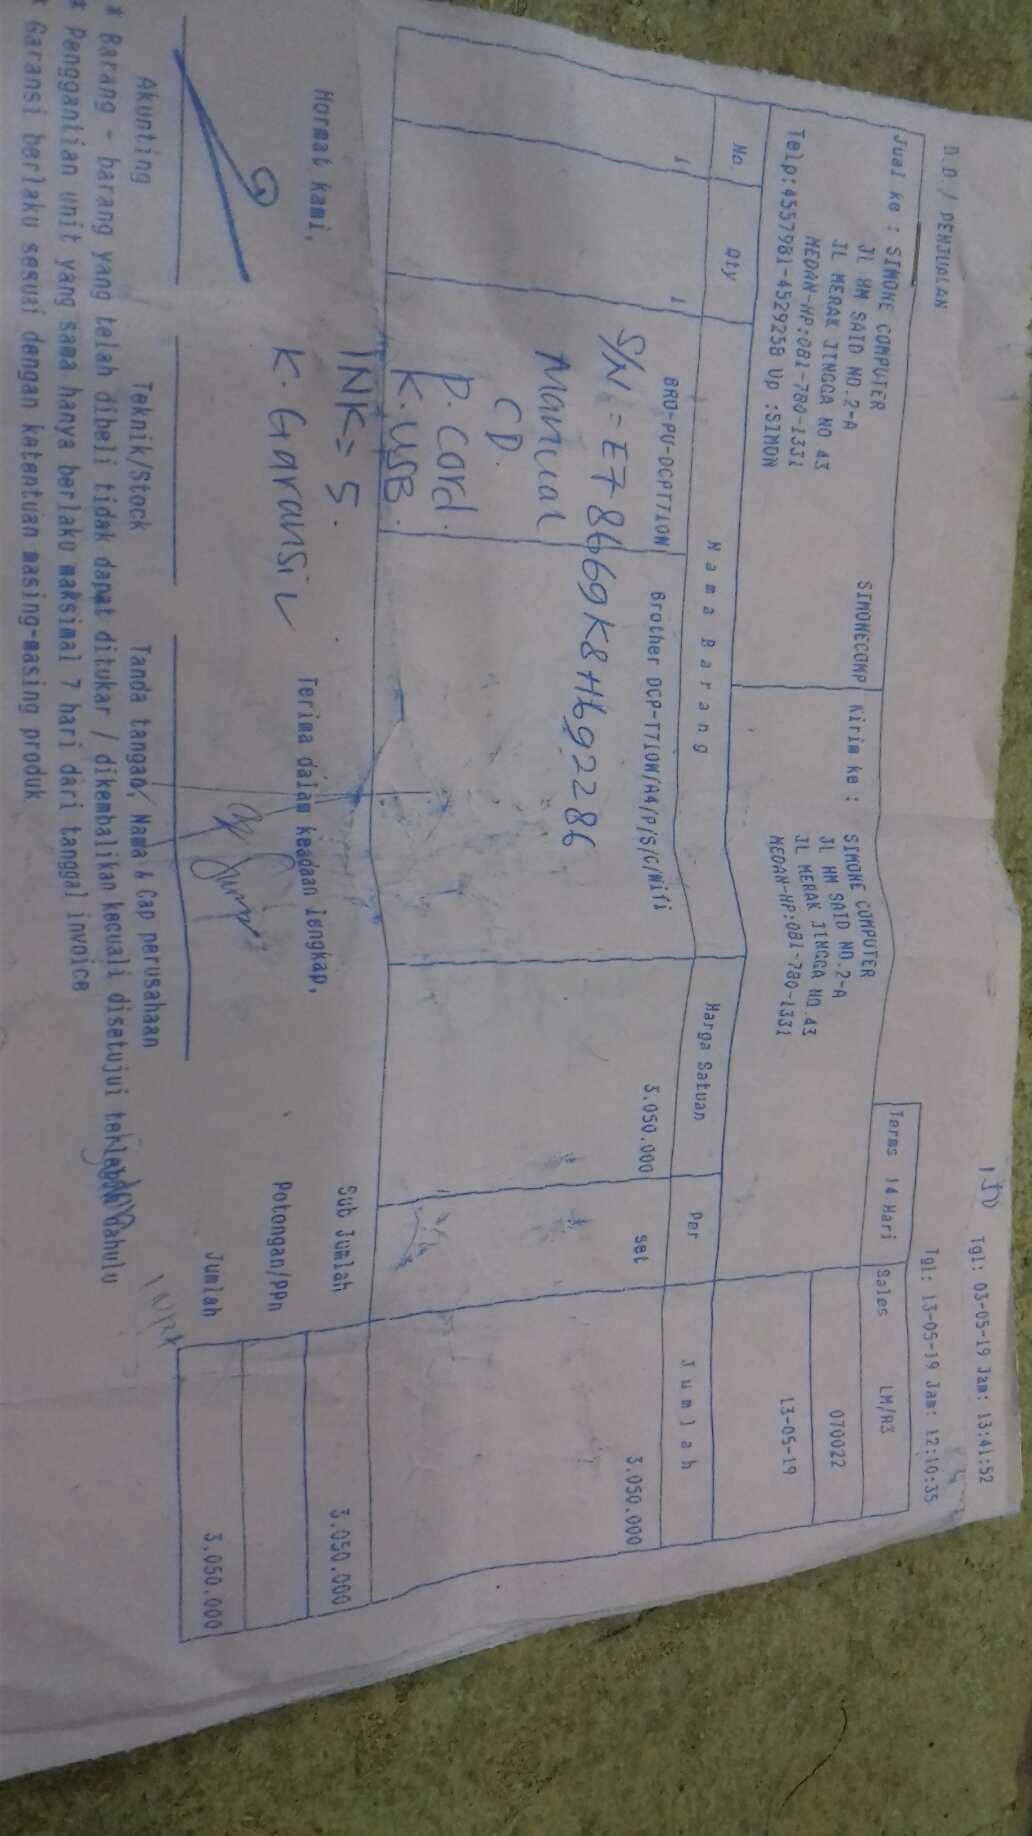 D.O./ PENJUALAN
Tgl: 03-05-19 Jam: 13:41:52
Tgl: 13-05-19 Jam: 12:10:35
Jual ke : SIMONE COMPUTER SIMONECOMP
JL HM SAID NO.2-A
JL MERAK JINGGA NO 43
MEDAN-HP:081-780-1331
Telp:4557981-4529258 Up :SIMON
Kirim ke : SIMONE COMPUTER
JL HM SAID NO.2-A
JL MERAK JINGGA NO 43
MEDAN-HP:081-780-1331
Terms 14 Hari Sales LM/A3
070022
13-05-19
No. Qty Nama Barang Harga Satuan Per Jumlah
1 1 BRO-PU-DCPT710W Brother DCP-T710W/A4/P/S/C/Wifi 3.050.000 set 3.050.000
S/N = E78669K8H692286
Manual
CD.
P. Cord.
K. USB.
INK = 5.
K. Garansi
Sub Jumlah 3.050.000
Hormat kami, Terima dalam keadaan lengkap,
Potongan/PPn
Jumlah 3.050.000
Akunting Teknik/Stock Tanda tangan, Nama & Cap perusahaan
* Barang - barang yang telah dibeli tidak dapat ditukar / dikembalikan kecuali disetujui terlebih dahulu
* Penggantian unit yang sama hanya berlaku maksimal 7 hari dari tanggal invoice
* Garansi berlaku sesuai dengan ketentuan masing-masing produk